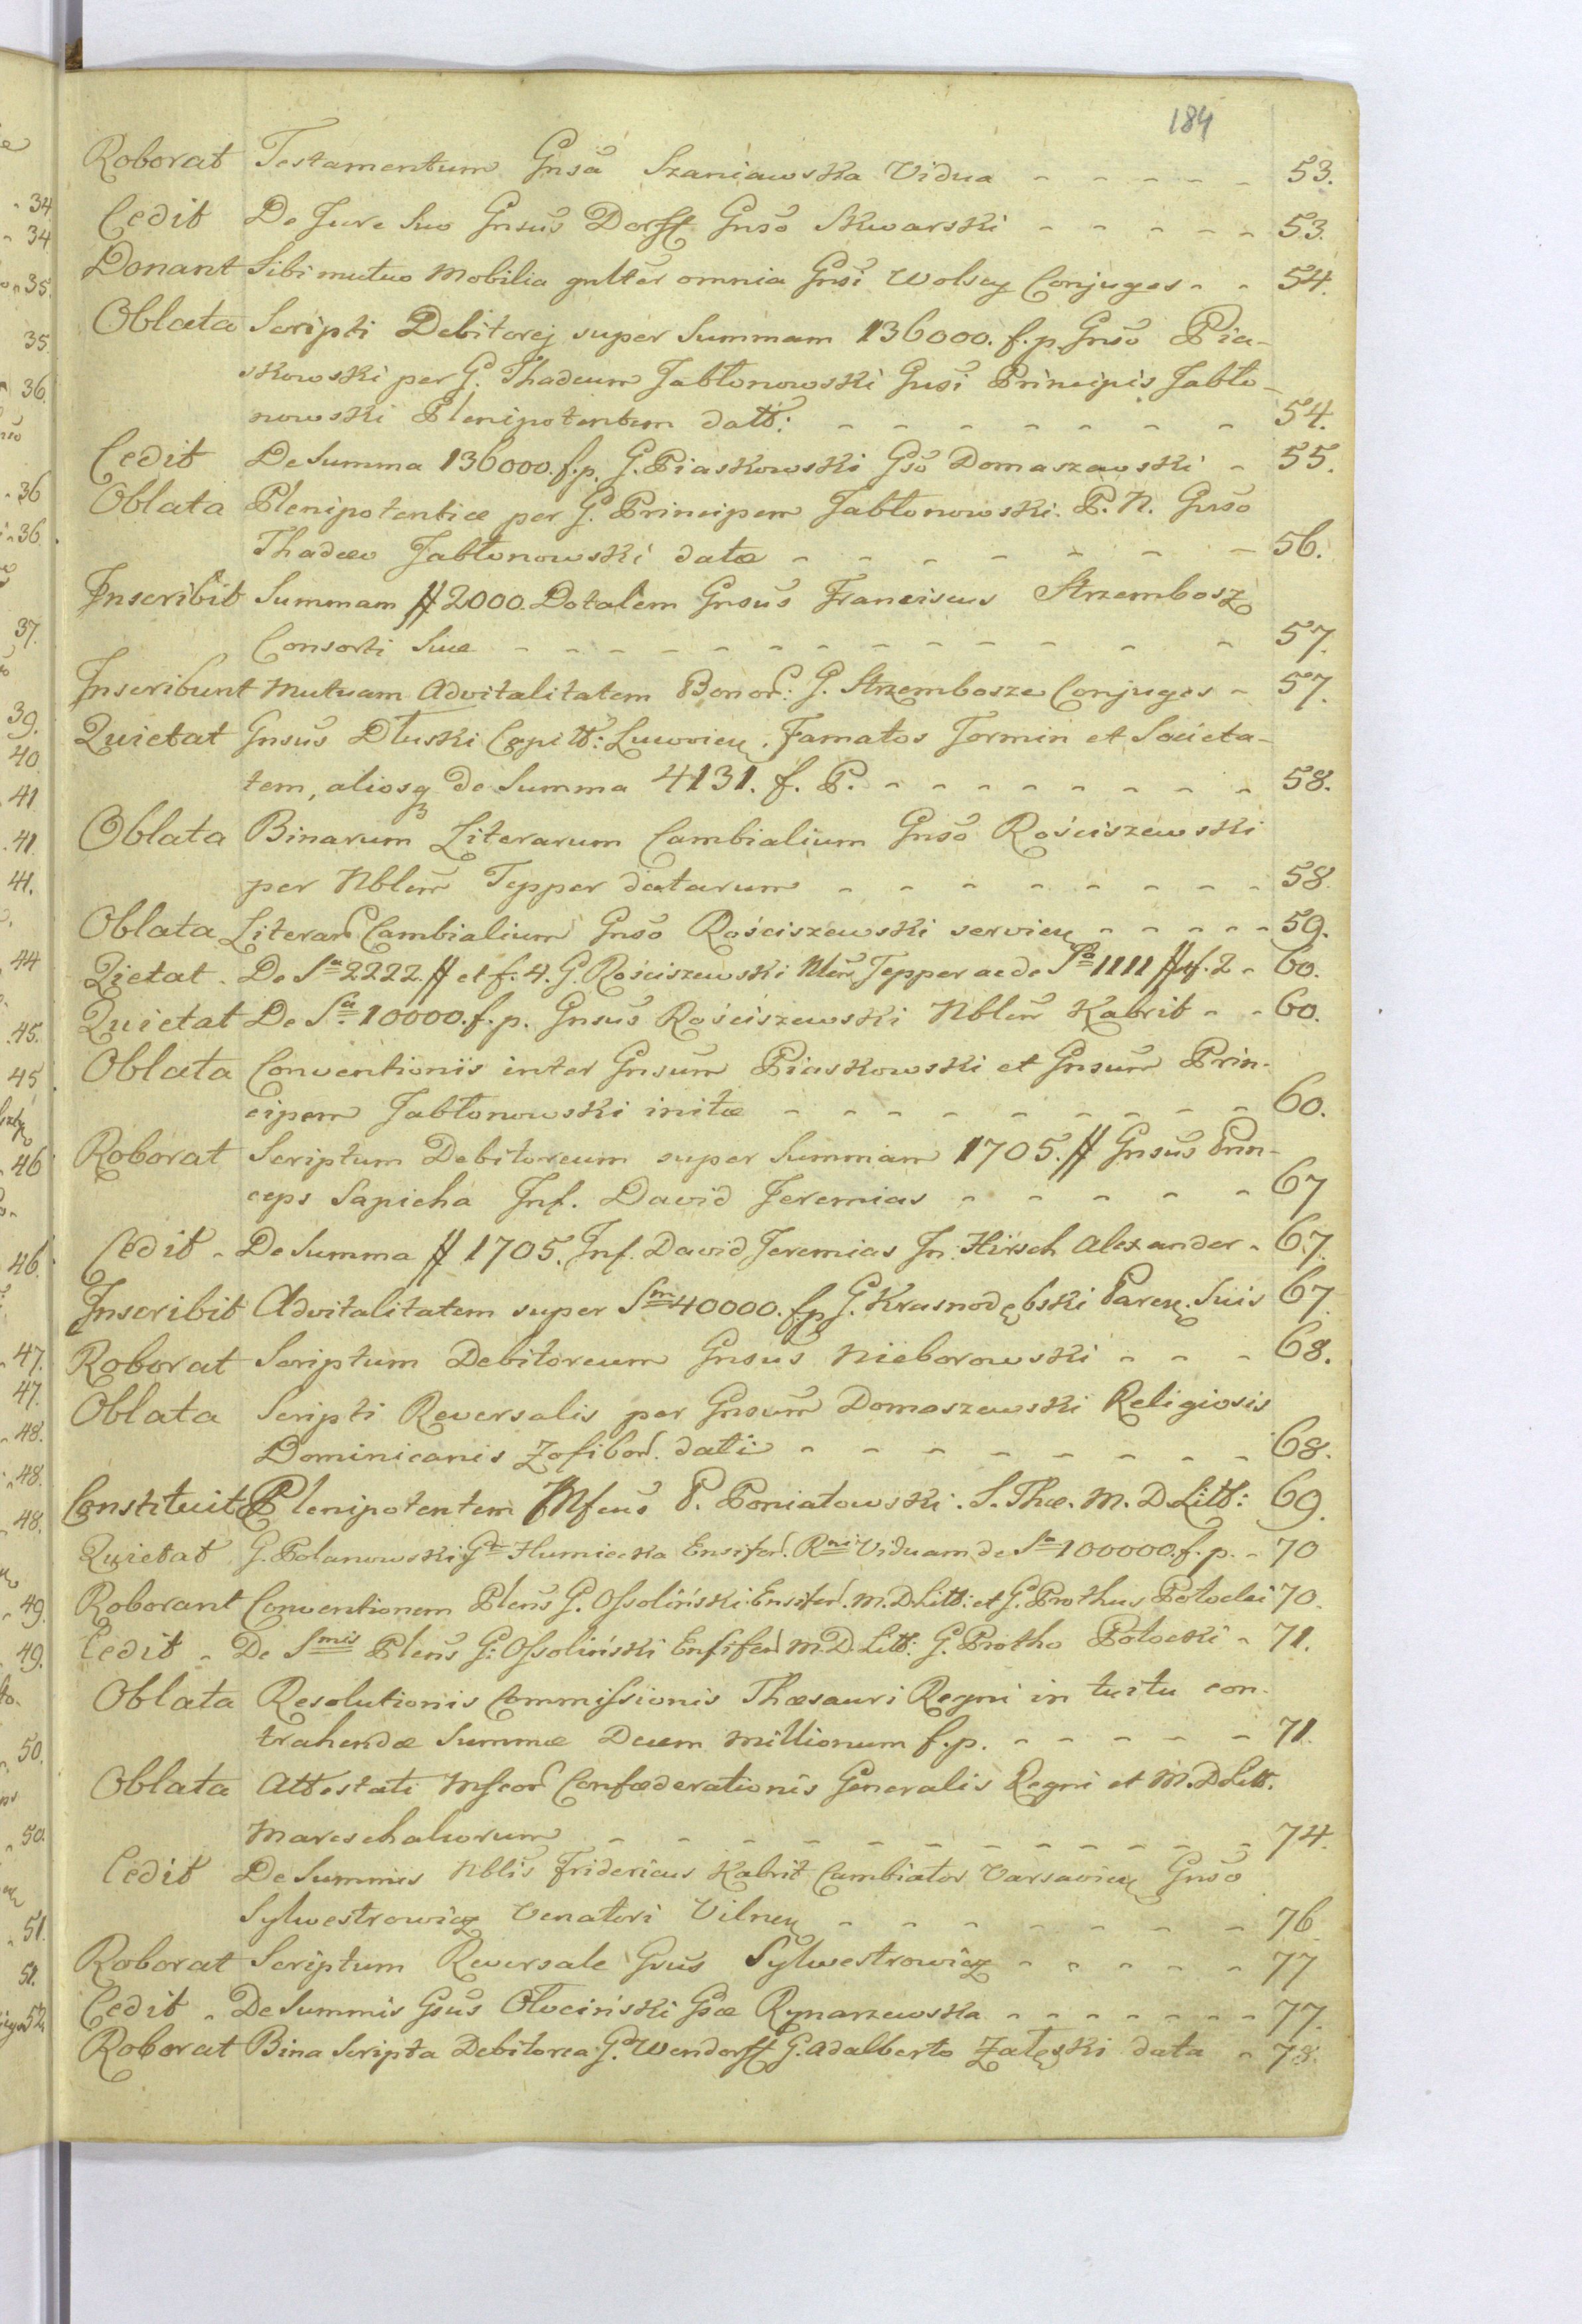 184
Roborat Testamentum Gnsa Szaniawska Vidua - - - - - 53.
Cedit De Jure Suo Gnsus Dorff Gnso Skwarski - - - - - 53.
Donant Sibi mutuo Mobilia gnlter omnia Gnsi Wolscy Conjuges - - 54.
Oblata Scripti Debitorej super Summam 136000. f. p. Gnso Pia-
skowski per G. Thadeum Jabłonowski Gnsi Principis Jabło-
nowski Plenipotentem datt: - - - - - - - 54.
Cedit De Summa 136000. f. p. G. Piaskowski Gso Domaszewski - 55.
Oblata Plenipotentiæ per G. Principem Jabłonowski. P. N. Gnso
Thadæo Jabłonowski datæ - - - - - - - 56.
Inscribit Summam ## 2000. Dotalem Gnsus Franciscus Strzembosz
Consorti Suæ - - - - - - - - - - 57.
Inscribunt Mutuam Advitalitatem Bonor: G. Strzembosze Conjuges - 57.
Quietat Gnsus Dłuski Cape͠ll: Luvovien. Famatos Jormin et Societa-
tem, aliosq de Summa 4131. f. P. - - - - - - - - 58.
Oblata Binarum Literarum Cambialium Gnso Rościszewski
per Nblem Tepper datarum - - - - - - - - 58.
Oblata Literar Cambialium Gnso Rościszewski servien - - - - - 59.
Qietat - De Sa 2222 ## et f. 4. G. Rościszewski Nlem Tepper ac de Sa 1111 ## f. 2 - 60.
Quietat De Sa 10000. f. p. Gnsus Rościszewski Nblem Kabrit - - 60.
Oblata Conventionis inter Gnsum Piaskowski et Gnsum Prin-
cipem Jabłonowski initæ - - - - - - - - 60.
Roborat Scriptum Debitoreum super Summam 1705. ## Gnsus Prin-
ceps Sapieha Inf. David Jeremias - - - - - 67
Cedit - De Summa ## 1705. Inf. David Jeremias In. Hirsch Alexander - 67.
Inscribit Advitalitatem super Sm 40000. f. p. G. Krasnodębski Paren. Suis 67.
Roborat Scriptum Debitoreum Gnsus Nieborowski - - - 68.
Oblata Scripti Reversalis per Gnsum Domaszewski Religiosis
Dominicanis Zofibor. dati - - - - - - - - 68.
Constituit Plenipotentem Mfcus P. Poniatowski. S. Thæ. M. D Litt: 69.
Quietat G. Polanowski Gm Humiecka Ensifer. Rni Viduam de Sa 100000. f. p. - 70
Roborant Conventionem Plens G. Ossoliński Ensifer. M. D Litt: et G. Prothus Potocki 70.
Cedit - De Smis Plens G: Ossoliński Ensifer. M. D. Litt: G. Protho Potocki - 71.
Oblata Resolutionis Commissionis Thæsauri Regni in tuitu con-
trahendæ Summæ Decem millionum f. p. - - - - - 71.
Oblata Attestati Mfcor Confæderationis Generalis Regni et M. D Litt.
Mareschalcorum - - - - - - - - - - - 74.
Cedit De Summis Nblis Fridericus Kabrit Cambiator Varsavien Gnso
Sylwestrowicz Venatori Vilnen - - - - - - - 76
Roborat Scriptum Reversale Gsus Sylwestrowicz - - - - - 77
Cedit - De Summis Gsus Ołociński Gsæ Rynarzewska - - - - - - - 77.
Roborat Bina Scripta Debitorea G. Wendorff G. Adalberto Załęski data - 78.